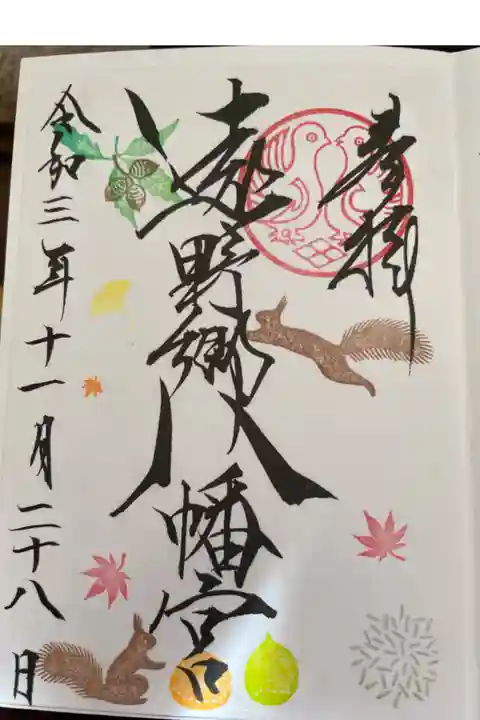 奉拝
遠野郷八幡宮
令和三年十一月二十八日